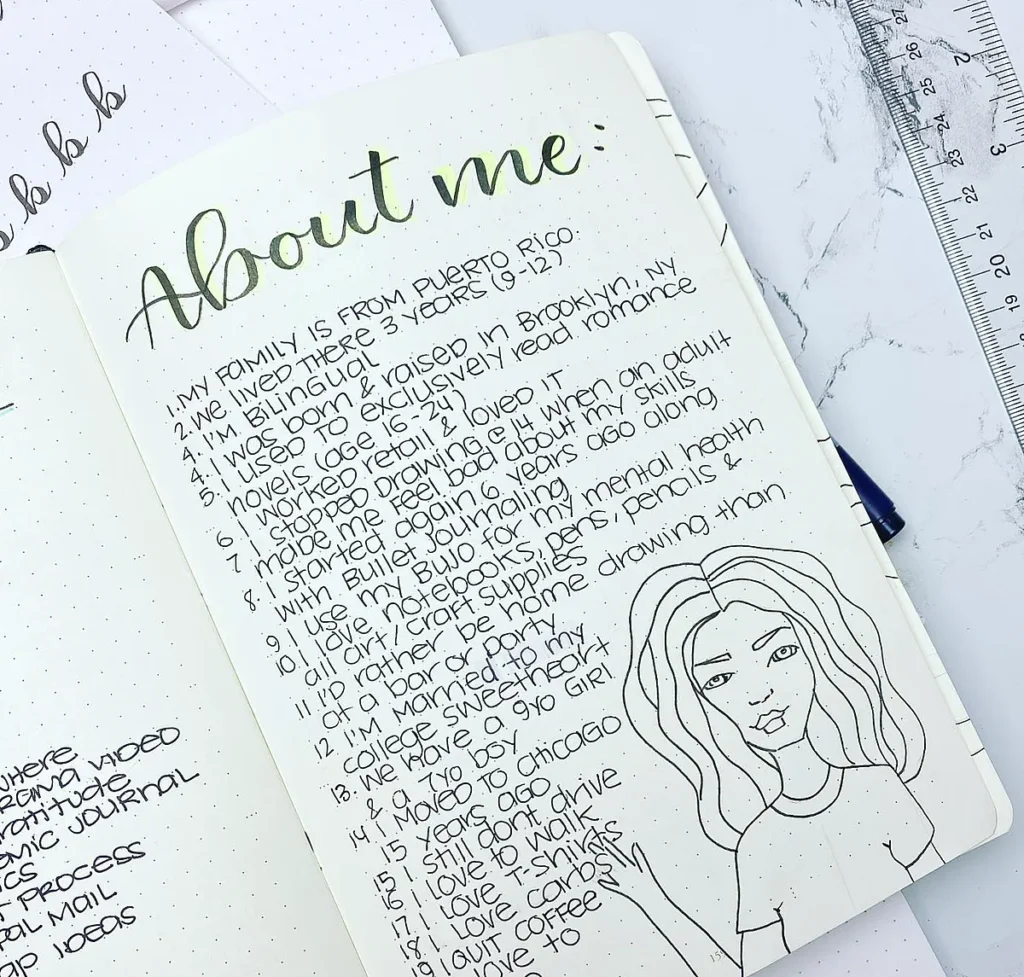 k k k
About me:
1. MY FAMILY IS FROM PUERTO RICO.
2. We lived THERE 3 years (9-12)
4. I'm Bilingual
4. I was born & raised in Brooklyn, NY
5. I used TO exclusively read romance
novels (age 16-24)
6 I worked retail & loved IT
7 I stopped Drawing @ 14 when an adult
made me feel bad about my skills
8 I started again 6 years ago along
with Bullet Journaling
9 I use my BUJO for my mental health
10 I love notebooks, pens, pencils &
all art/craft supplies
11 I'D rather be home drawing than
at a bar or party
12 I'm married to my
college sweetheart
13. We have a 9yo GIRL
& a 7yo boy
14 I moved TO CHICAGO
15 years ago
15 I still dont drive
16 I love to walk
17 I love T-shirts
18 I love carbs
19 I quit coffee
love to
VIDEO
JOURNAL
PROCESS
MAIL
IDEAS
27
26
25
24
23
22
21
20
19
18
2
3